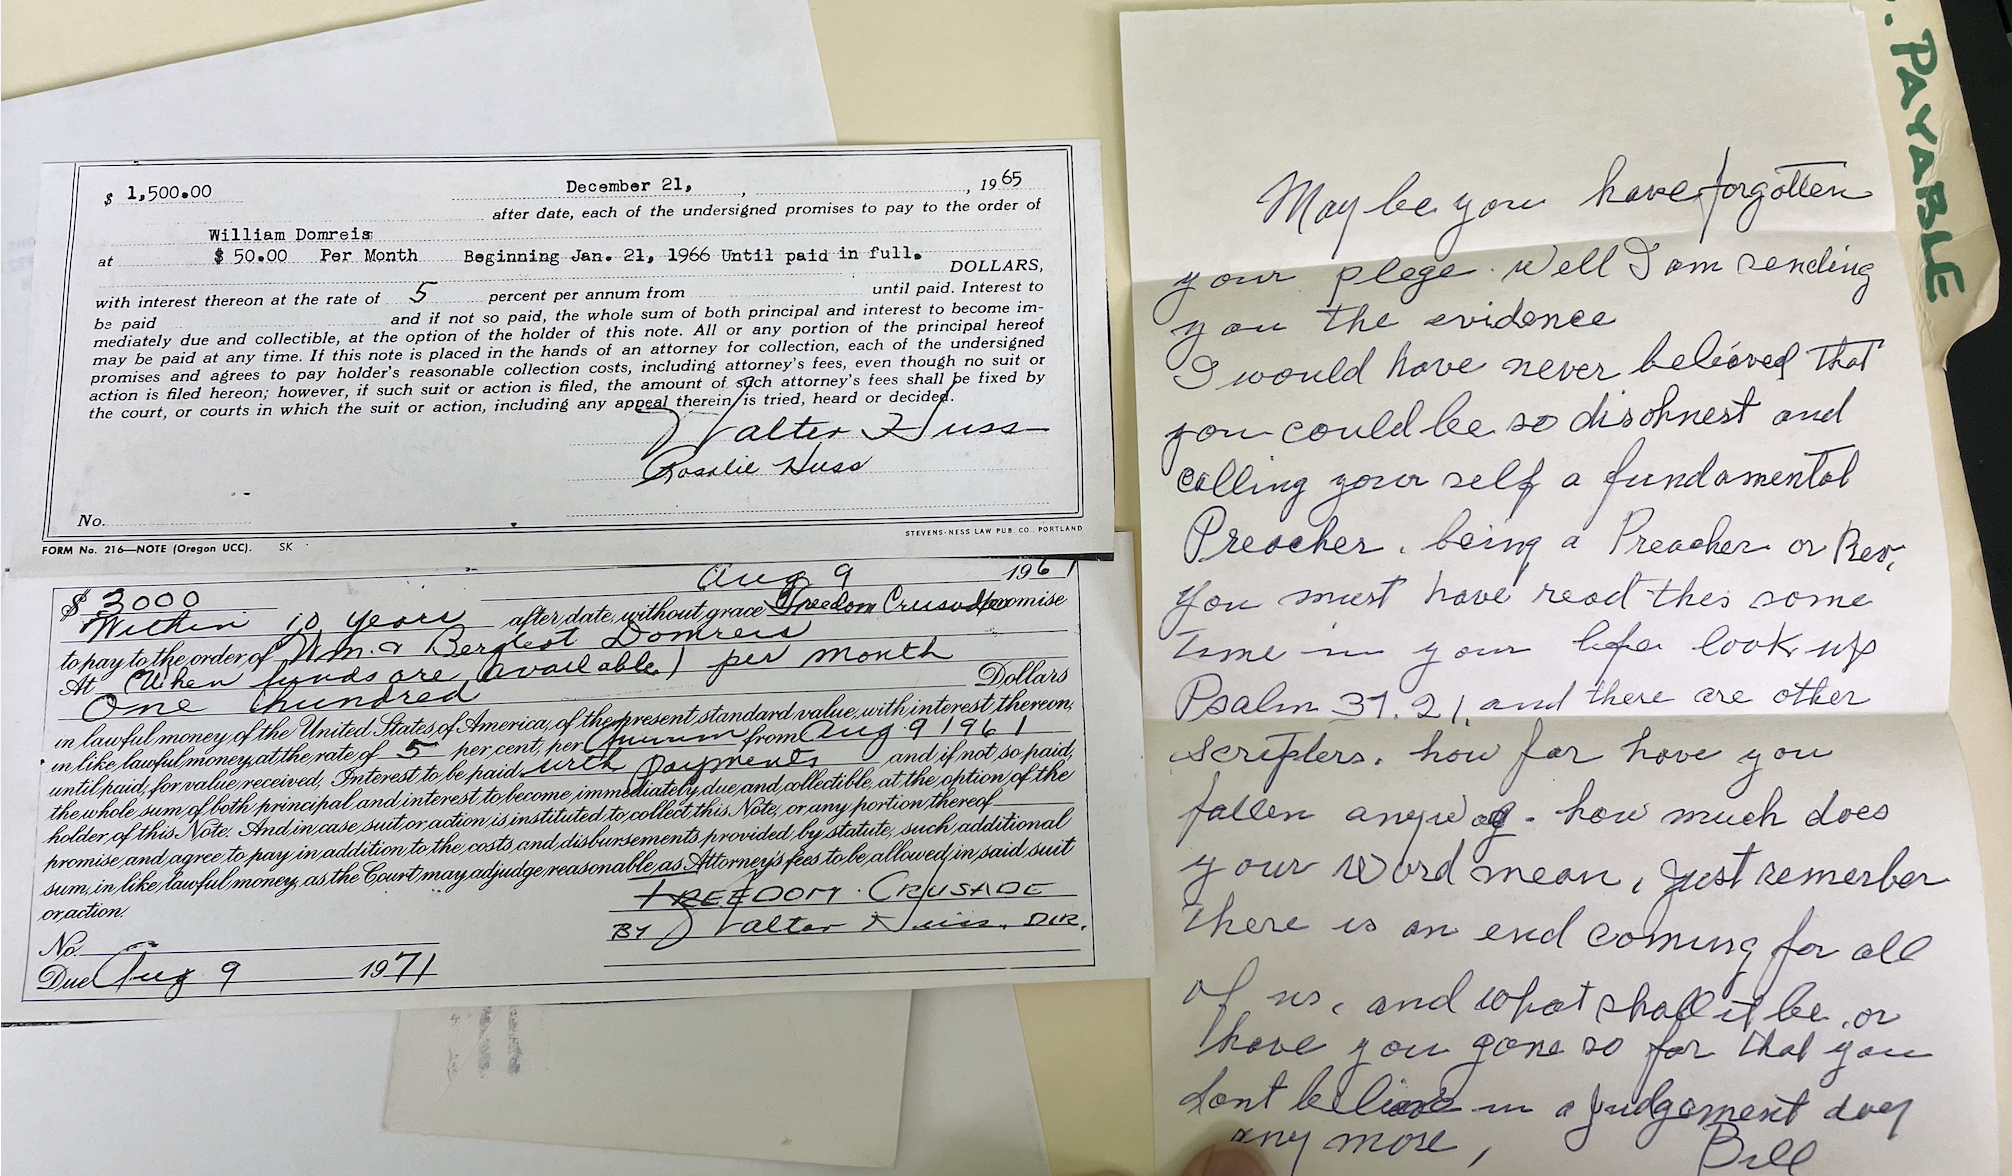 $ 1,500.00 December 21, , 1965
after date, each of the undersigned promises to pay to the order of
William Domreis
at $ 50.00 Per Month Beginning Jan. 21, 1966 Until paid in full.
DOLLARS,
with interest thereon at the rate of 5 percent per annum from until paid. Interest to
be paid and if not so paid, the whole sum of both principal and interest to become im-
mediately due and collectible, at the option of the holder of this note. All or any portion of the principal hereof
may be paid at any time. If this note is placed in the hands of an attorney for collection, each of the undersigned
promises and agrees to pay holder's reasonable collection costs, including attorney's fees, even though no suit or
action is filed hereon; however, if such suit or action is filed, the amount of such attorney's fees shall be fixed by
the court, or courts in which the suit or action, including any appeal therein is tried, heard or decided.
Walter Huss
Rosalie Huss
No.
FORM No. 216—NOTE (Oregon UCC). SK STEVENS-NESS LAW PUB. CO. PORTLAND
$ 3000 Aug 9 1961
Within 10 years after date, without grace Freedom Crusade promise
to pay to the order of Wm. & Domreis
At (When funds are available) per month
One hundred Dollars
in lawful money of the United States of America, of the present standard value, with interest thereon,
in like lawful money at the rate of 5 per cent, per Annum from Aug 9 1961
until paid, for value received, Interest to be paid with payments and if not so paid,
the whole sum of both principal and interest to become immediately due and collectible, at the option of the
holder of this Note. And in case suit or action is instituted to collect this Note, or any portion thereof
promise and agree to pay in addition to the costs and disbursements provided by statute, such additional
sum, in like lawful money, as the Court may adjudge reasonable, as Attorney's fees to be allowed in said suit
or action.
FREEDOM CRUSADE
BY Walter Huss, DIR.
No.
Due Aug 9 1971
May be you have forgotten
your plege. Well I am sending
you the evidence
I would have never belioved that
you could be so disohnest and
calling your self a fundamental
Preacher. being a Preacher or Rev,
you must have read thes some
time in your life look up
Psalm 37.21, and there are other
scripters. how far have you
fallen anyway. how much does
your word mean, just remerber
there is an end coming for all
of us, and what shall it be, or
have you gone so far that you
dont believe in a judgement day
any more, Bill
. PAYABLE